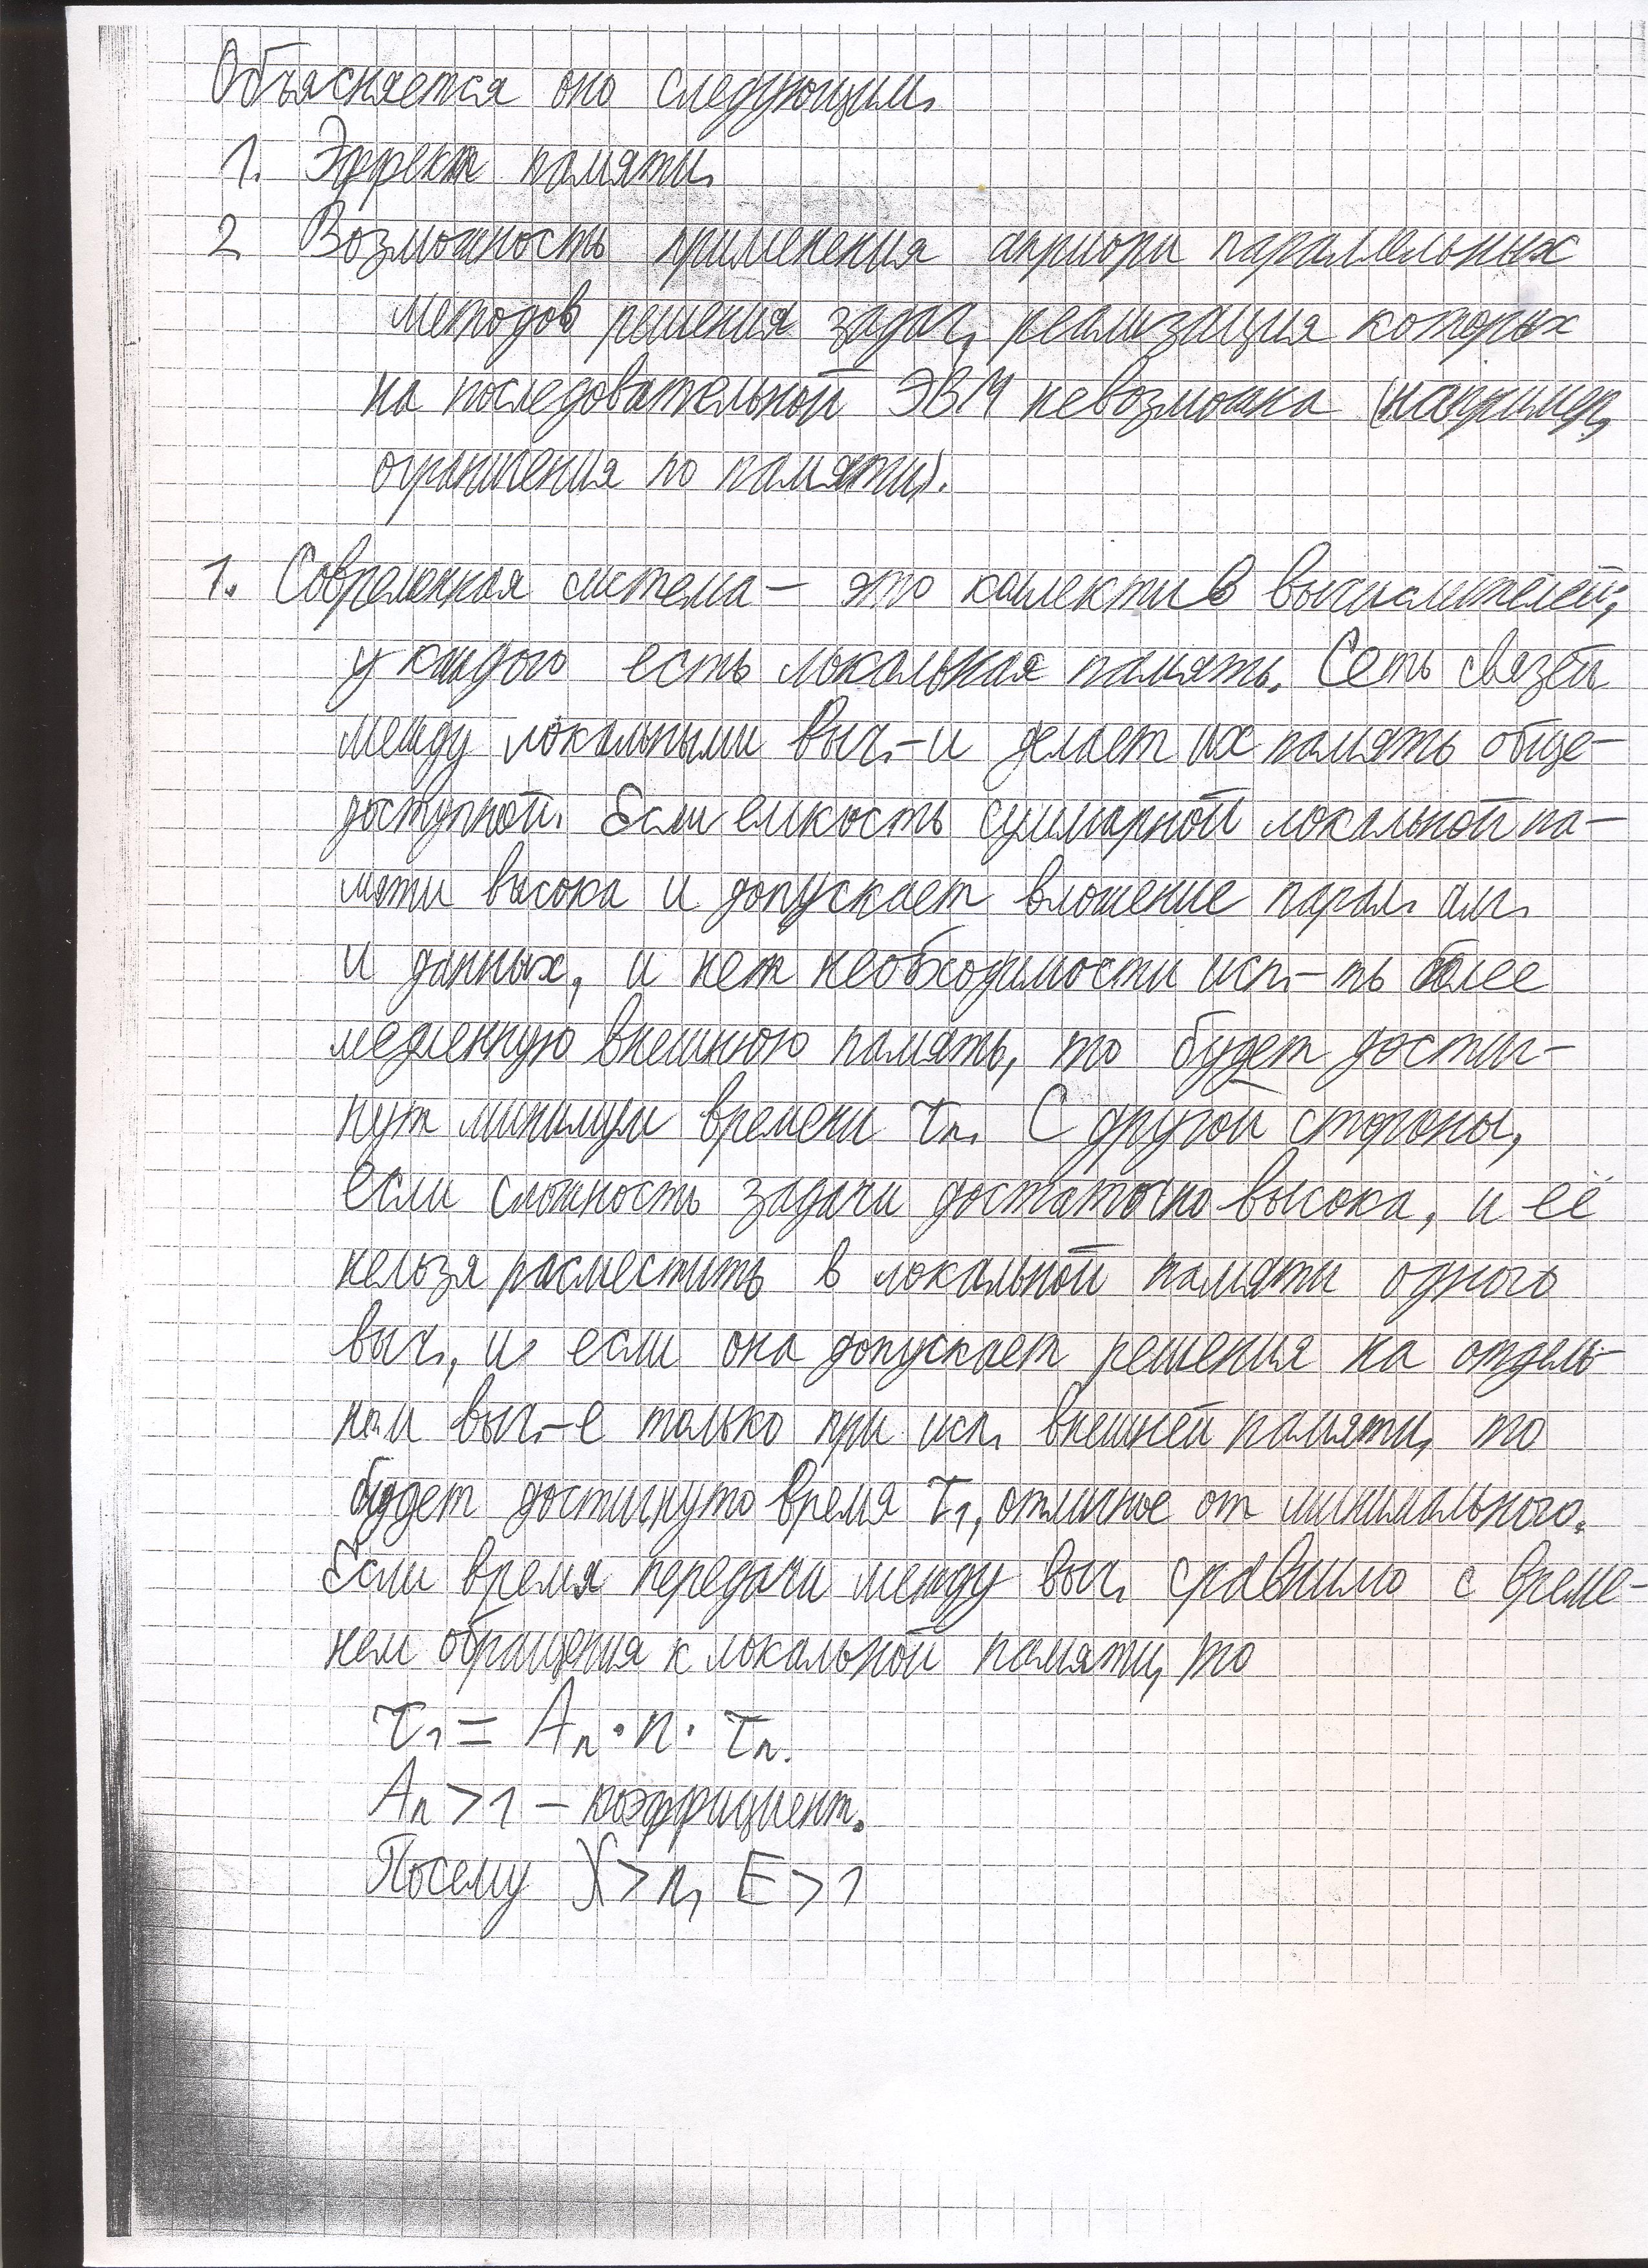 Объясняется оно следующим.
1. Эффект памяти.
2 Возможность применения априори параллельных
методов решения задач, реализация которых
на последовательной ЭВМ невозможна (например,
ограничения по памяти).
1. Современная система – это коллектив вычислителей;
у каждого есть локальная память. Сеть связей
между локальными выч.-и делает их память обще-
доступной. Если емкость суммарной локальной па-
мяти высока и допускает вложение парал. алг.
и данных, и нет необходимости исп.-ть более
медленную внешнюю память, то будет достиг-
нут минимум времени τn. С другой стороны,
если сложность задачи достаточно высока, и её
нельзя разместить в локальной памяти одного
выч., и если она допускает решения на отдель-
ном выч.-е только при исп. внешней памяти, то
будет достигнуто время τ1, отличное от минимального.
Если время передачи между выч. сравнимо с време-
нем обращения к локальной памяти, то
τ1 = An · n · τn.
An > 1 – коэффициент.
Посему χ > n, E > 1